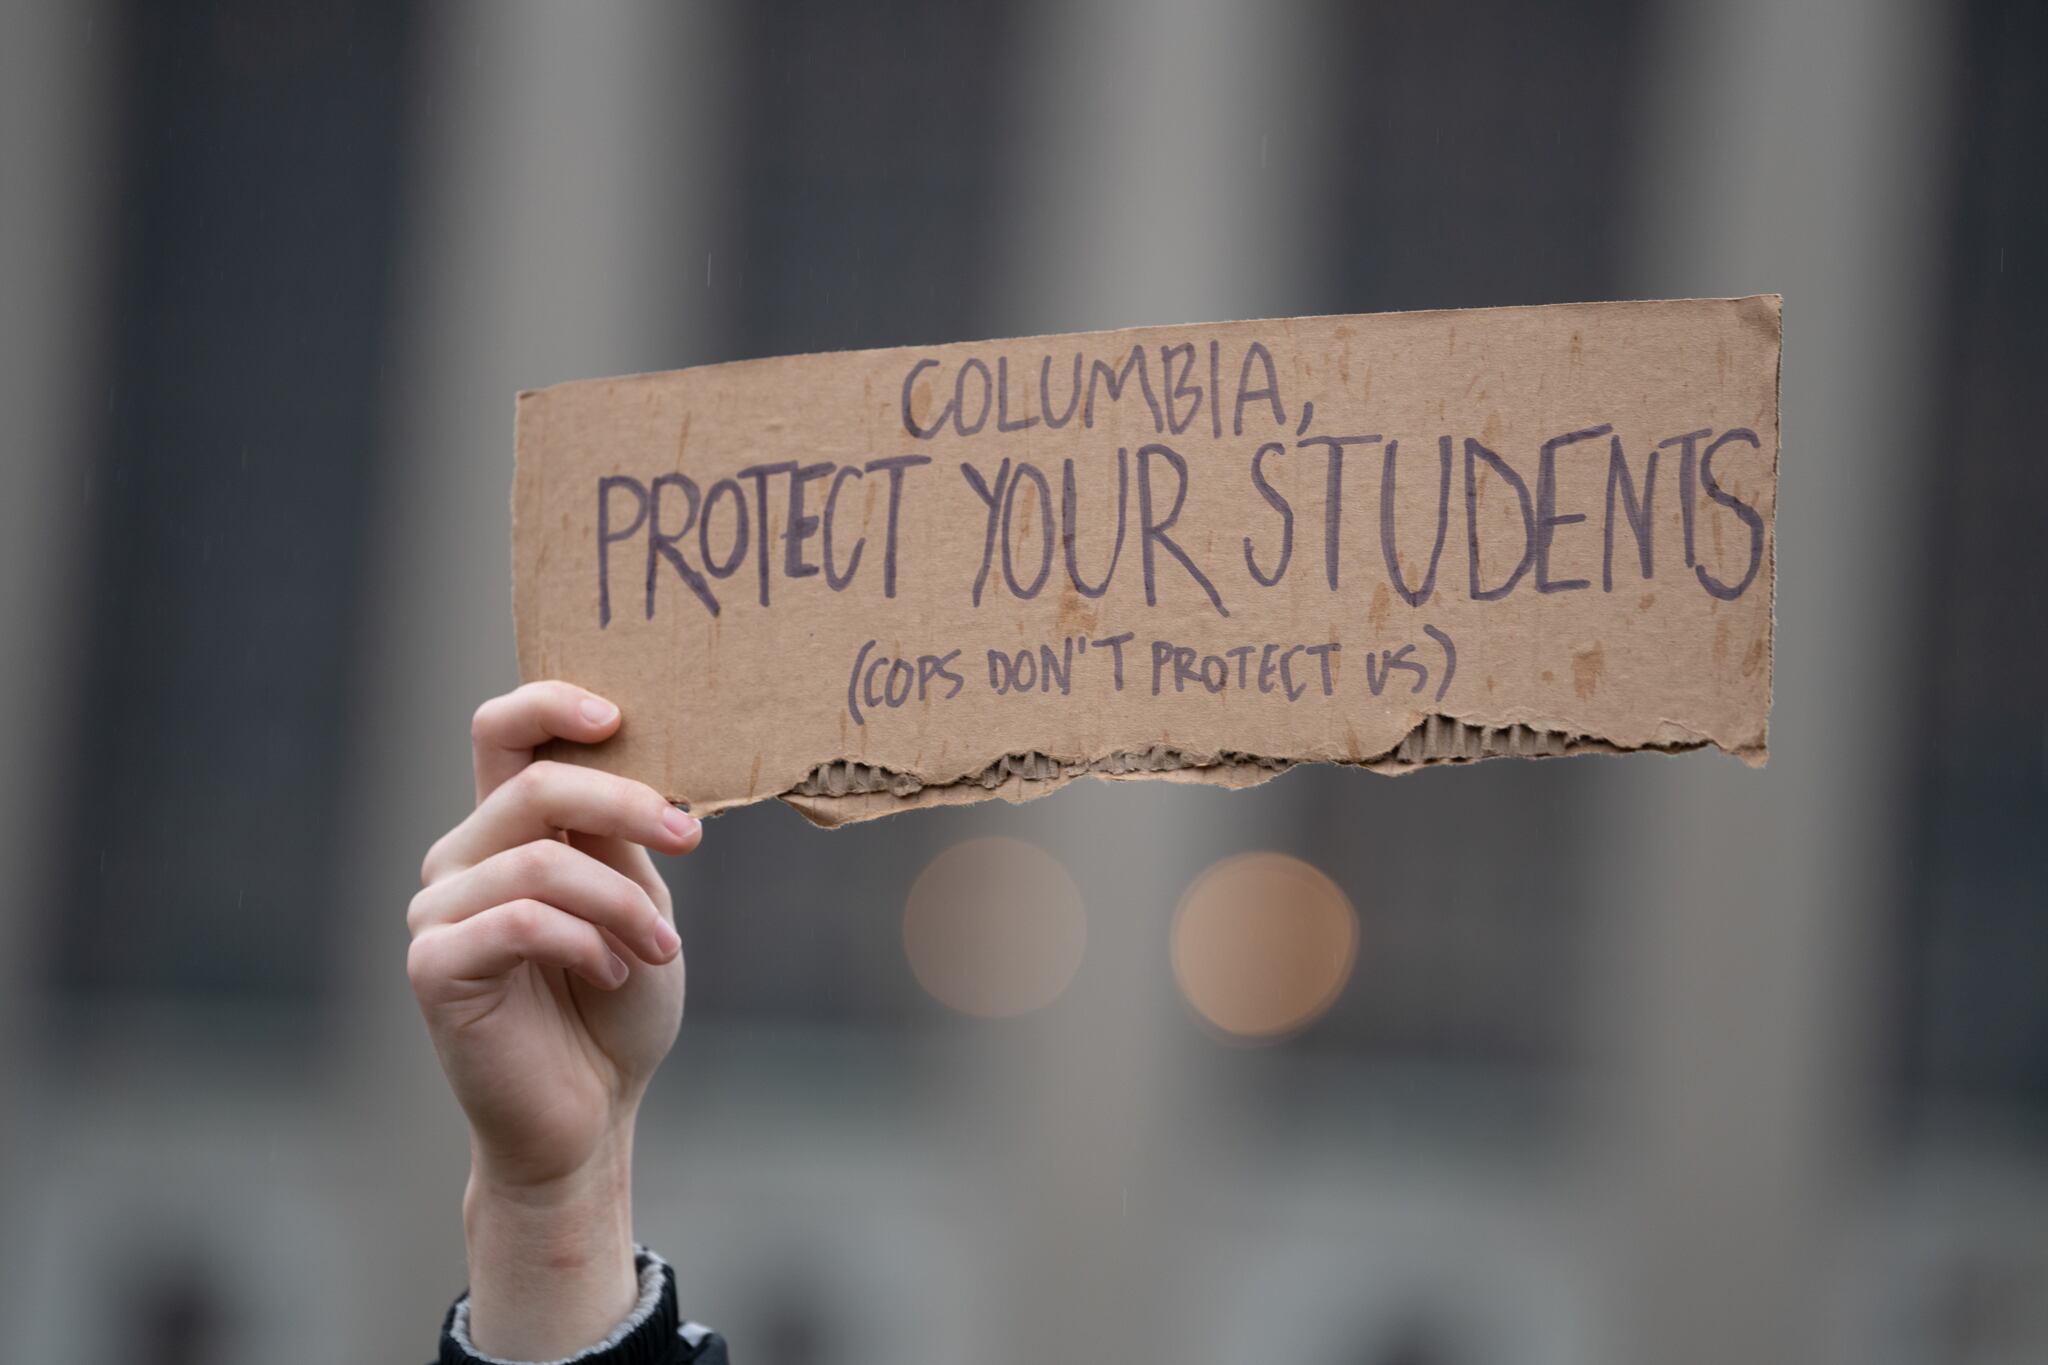 COLUMBIA,
PROTECT YOUR STUDENTS
(COPS DON'T PROTECT US)